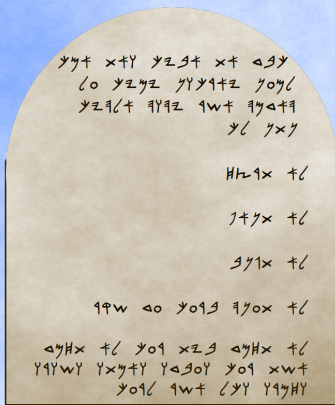 𐤊𐤁𐤃 𐤀𐤕 𐤀𐤁𐤉𐤊 𐤅𐤀𐤕 𐤀𐤌𐤊
𐤋𐤌𐤏𐤍 𐤉𐤀𐤓𐤊𐤅𐤍 𐤉𐤌𐤉𐤊 𐤏𐤋
𐤄𐤀𐤃𐤌𐤄 𐤀𐤔𐤓 𐤉𐤄𐤅𐤄 𐤀𐤋𐤄𐤉𐤊
𐤍𐤕𐤍 𐤋𐤊
𐤋𐤀 𐤕𐤓𐤑𐤇
𐤋𐤀 𐤕𐤍𐤀𐤐
𐤋𐤀 𐤕𐤂𐤍𐤁
𐤋𐤀 𐤕𐤏𐤍𐤄 𐤁𐤓𐤏𐤊 𐤏𐤃 𐤔𐤒𐤓
𐤋𐤀 𐤕𐤇𐤌𐤃 𐤁𐤉𐤕 𐤓𐤏𐤊 𐤋𐤀 𐤕𐤇𐤌𐤃
𐤀𐤔𐤕 𐤓𐤏𐤊 𐤅𐤏𐤁𐤃𐤅 𐤅𐤀𐤌𐤕𐤅 𐤅𐤔𐤅𐤓𐤅
𐤅𐤇𐤌𐤓𐤅 𐤅𐤊𐤋 𐤀𐤔𐤓 𐤋𐤓𐤏𐤊